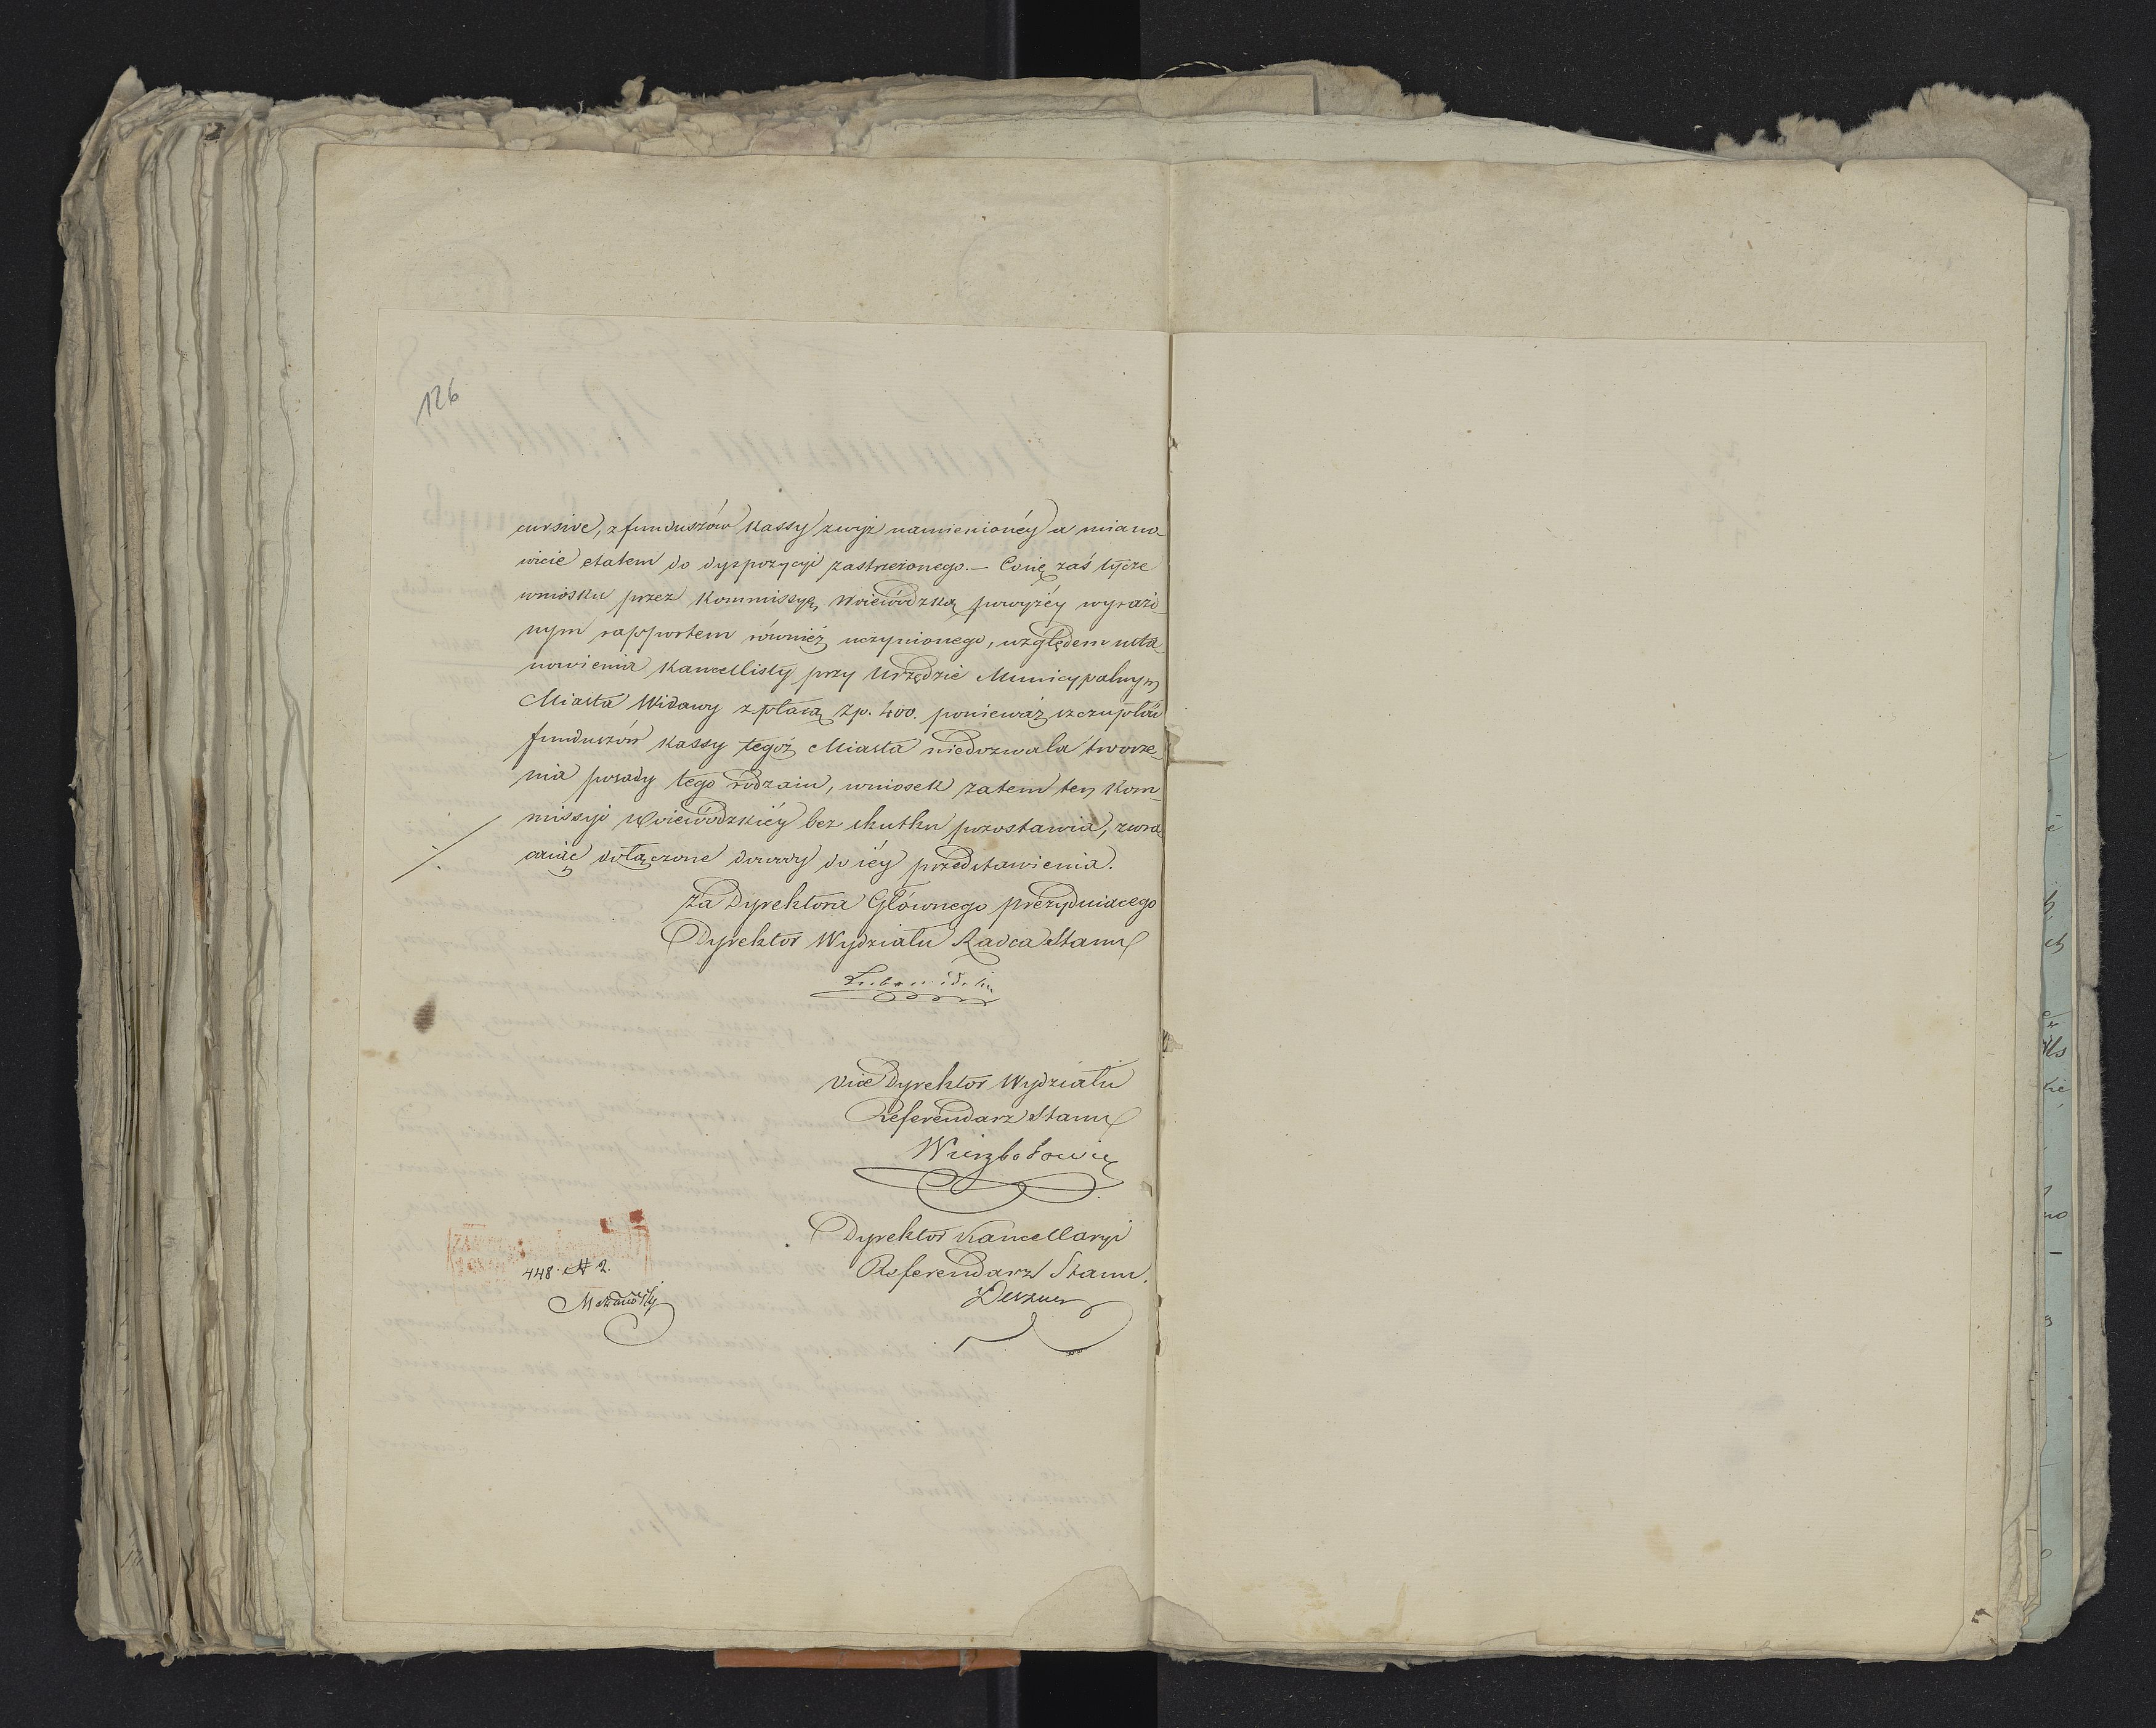 126
cursive, z funduszów kassy zwyż namienionéy a miano
wicie etatem do dyspozycyi zastrzeżonego. — Co się zaś tycze
wniosku przez Kommissyę Woiewódzką powyżéy wyrażo
nym rapportem również uczynionego, względem usta
nowienia Kancellisty przy Urzędzie Municypalnym
Miasta Widawy z płacą Zp. 400. ponieważ szczupłość
funduszów Kassy tegoż Miasta niedozwala tworze
nia posady tego rodzaiu, wniosek zatem ten Kom
missyi Woiewódzkiéy bez skutku pozostawia, zwra
caiąc dołączone dowody do iéy przedstawienia.
Za Dyrektora Głównego prezyduiącego
Dyrektor Wydziału Radca Stanu
Lubowidzki
Vice Dyrektor Wydziału
Referendarz Stanu
Wierzbołowicz
Dyrektor Kancellaryi
Referendarz Stanu.
448. N 2.